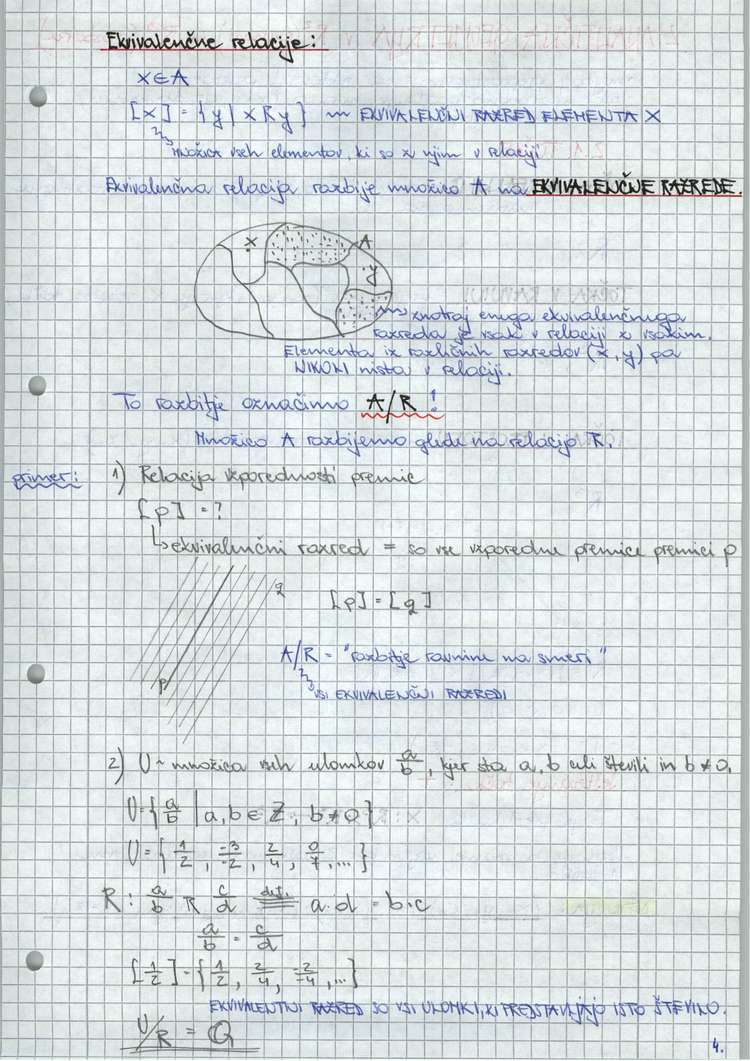 Ekvivalenčne relacije:
x∈A
[x] = {y | x R y} ~ EKVIVALENČNI RAZRED ELEMENTA X
množica vseh elementov, ki so z njim v relaciji
Ekvivalenčna relacija razbije množico A na EKVIVALENČNE RAZREDE.
x
A
y
znotraj enega ekvivalenčnega
razreda je vsak v relaciji z vsakim.
Elementa iz različnih razredov (x, y) pa
NIKOLI nista v relaciji.
To razbitje označimo A/R !
Množico A razbijemo glede na relacijo R.
primer: 1) Relacija vzporednosti premic
[p] = ?
↳ ekvivalenčni razred = so vse vzporedne premice premici p
q
[p] = [q]
p
A/R = "razbitje ravnine na smeri"
VSI EKVIVALENČNI RAZREDI
2) U ~ množica vseh ulomkov a/b, kjer sta a, b celi števili in b ≠ 0.
U = {a/b | a, b ∈ Z, b ≠ 0}
U = {1/2, -3/-2, 2/4, 0/7, ...}
R: a/b R c/d def. a·d = b·c
a/b = c/d
[1/2] = {1/2, 2/4, -2/-4, ...}
EKVIVALENTNI RAZRED SO VSI ULOMKI, KI PREDSTAVLJAJO ISTO ŠTEVILO.
U/R = Q
4.